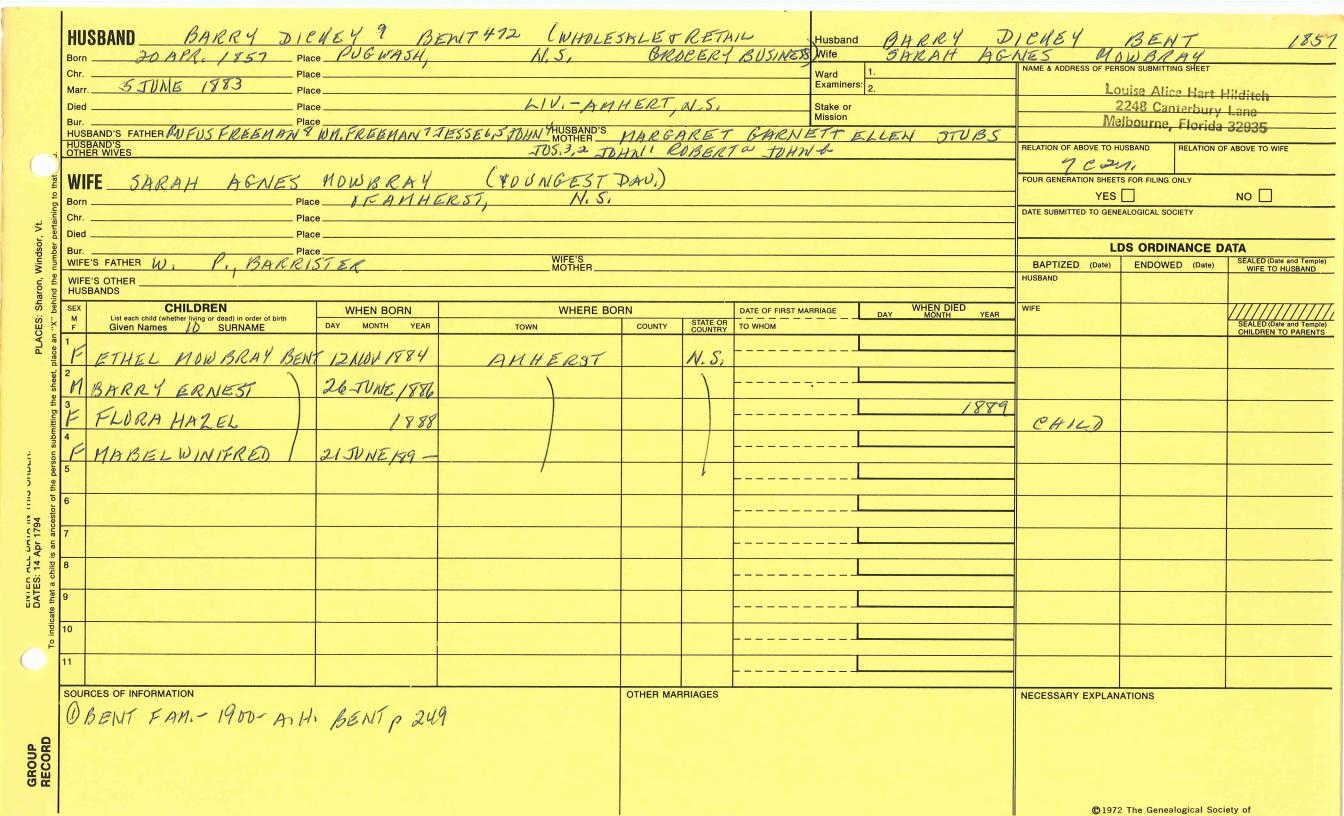 HUSBAND BARRY DICKEY 9 BENT 472 (WHOLESALE & RETAIL
Born 20 APR. 1857 Place PUGWASH, N.S. GROCERY BUSINESS)
Chr. Place
Marr. 5 JUNE 1883 Place
Died Place LIV.- AMHERT, N.S.
Bur. Place
HUSBAND'S FATHER RUFUS FREEMAN 8 WM. FREEMAN 7 JESSE 6,5 JOHN 4 HUSBAND'S MOTHER MARGARET GARNETT ELLEN STUBS
HUSBAND'S OTHER WIVES JOS. 3,2 JOHN 1 ROBERT a JOHN b
WIFE SARAH AGNES MOWBRAY (YOUNGEST DAU.)
Born Place OF AMHERST, N.S.
Chr. Place
Died Place
Bur. Place
WIFE'S FATHER W. P., BARRISTER WIFE'S MOTHER
WIFE'S OTHER HUSBANDS
Husband BARRY DICKEY BENT 1857
Wife SARAH AGNES MOWBRAY
Ward Examiners: 1.
2.
Stake or Mission
NAME & ADDRESS OF PERSON SUBMITTING SHEET
Louise Alice Hart Hilditch
2248 Canterbury Lane
Melbourne, Florida 32935
RELATION OF ABOVE TO HUSBAND RELATION OF ABOVE TO WIFE
FOUR GENERATION SHEETS FOR FILING ONLY
YES NO
DATE SUBMITTED TO GENEALOGICAL SOCIETY
LDS ORDINANCE DATA
BAPTIZED (Date) ENDOWED (Date) SEALED (Date and Temple) WIFE TO HUSBAND
HUSBAND
WIFE
SEALED (Date and Temple) CHILDREN TO PARENTS
SEX M F
CHILDREN
List each child (whether living or dead) in order of birth
Given Names 10 SURNAME
WHEN BORN
DAY MONTH YEAR
WHERE BORN
TOWN COUNTY STATE OR COUNTRY
DATE OF FIRST MARRIAGE
TO WHOM
WHEN DIED
DAY MONTH YEAR
1 F ETHEL MOWBRAY BENT 12 NOV 1884 AMHERST N.S.
2 M BARRY ERNEST 26 JUNE 1886
3 F FLORA HAZEL 1888 1889 CHILD
4 F MABEL WINIFRED 21 JUNE 189-
5
6
7
8
9
10
11
SOURCES OF INFORMATION
① BENT FAM.- 1900- A.H. BENT p 249
OTHER MARRIAGES
NECESSARY EXPLANATIONS
©1972 The Genealogical Society of
PLACES: Sharon, Windsor, Vt.
ENTER ALL DATA IN THIS ORDER:
DATES: 14 Apr 1794
To indicate that a child is an ancestor of the person submitting the sheet, place an "X" behind the number pertaining to that
GROUP RECORD